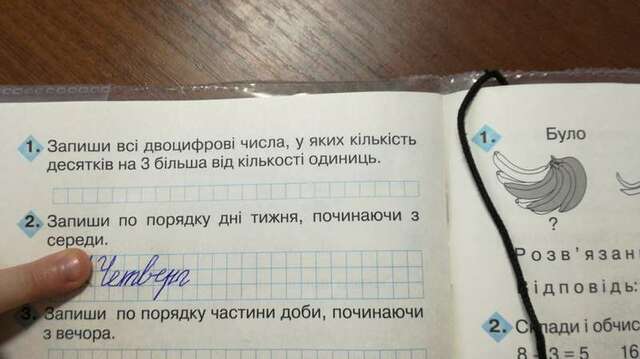 1. Запиши всі двоцифрові числа, у яких кількість
десятків на 3 більша від кількості одиниць.
2. Запиши по порядку дні тижня, починаючи з
середи.
Четверг
3. Запиши по порядку частини доби, починаючи
з вечора.
1. Було
?
Розв'язан
ідповідь:
2. Склади і обчис
8 3 = 5 16